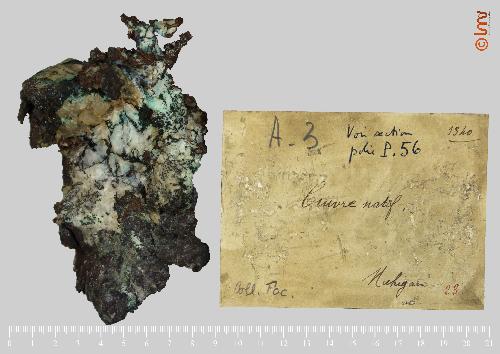 © lmv
A. 3
Voir section
polie P. 56
1920
Cuivre natif.
Michigan
Coll. Fac.
23
0 1 2 3 4 5 6 7 8 9 10 11 12 13 14 15 16 17 18 19 20 21